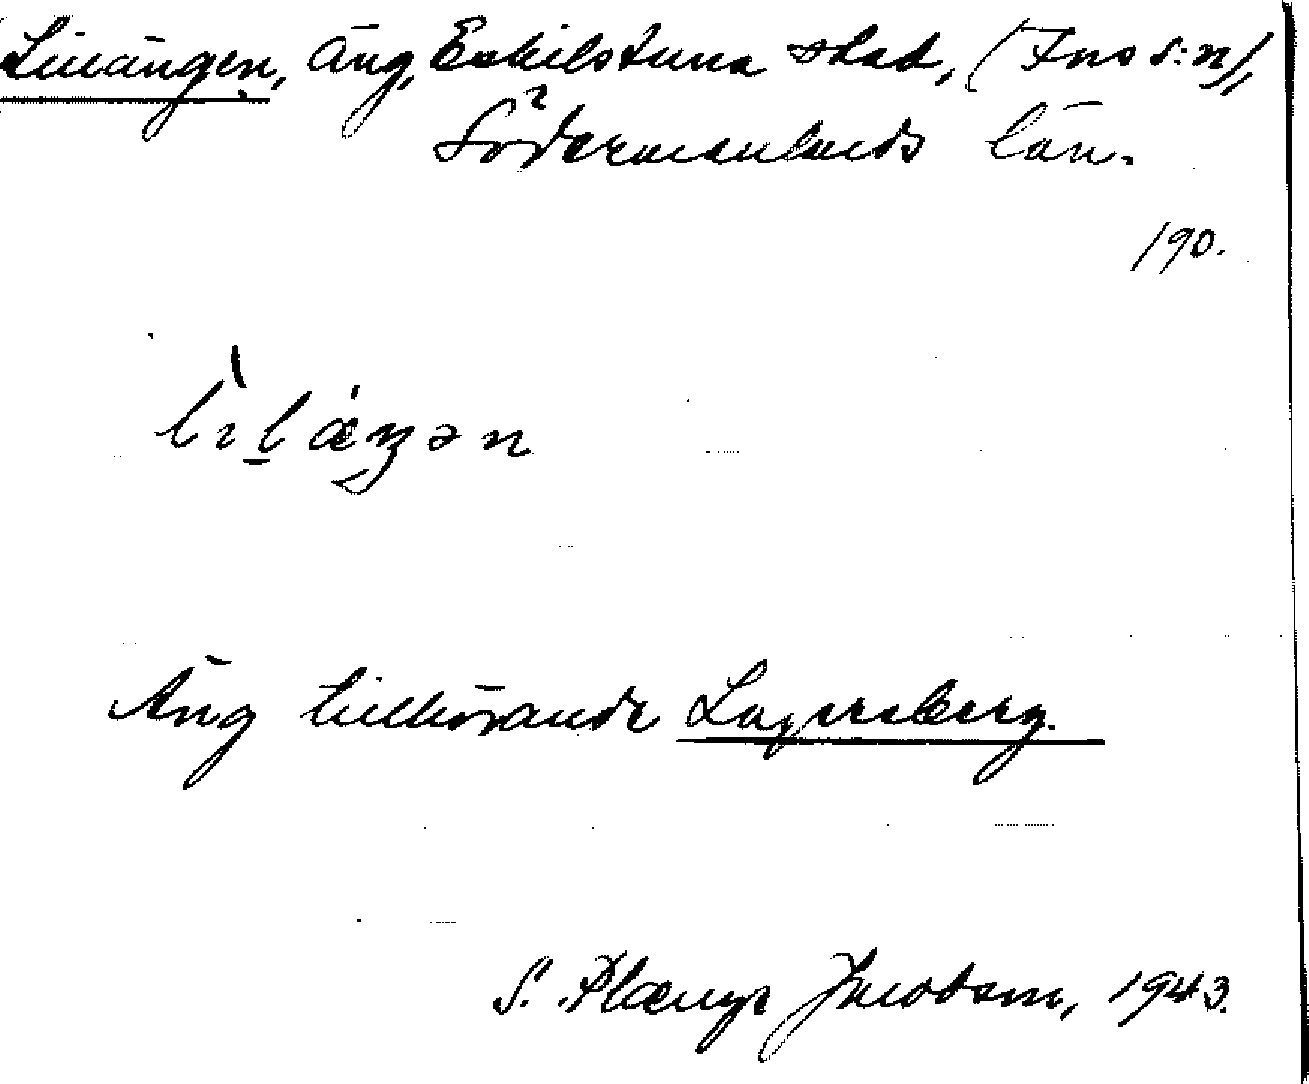 Lillängen, Äng, Eskilstuna stad, (Fors s:n),
Södermanlands län.
190.
Äng tillhörande Lagersberg.
S. Plænge Jacobson, 1943.